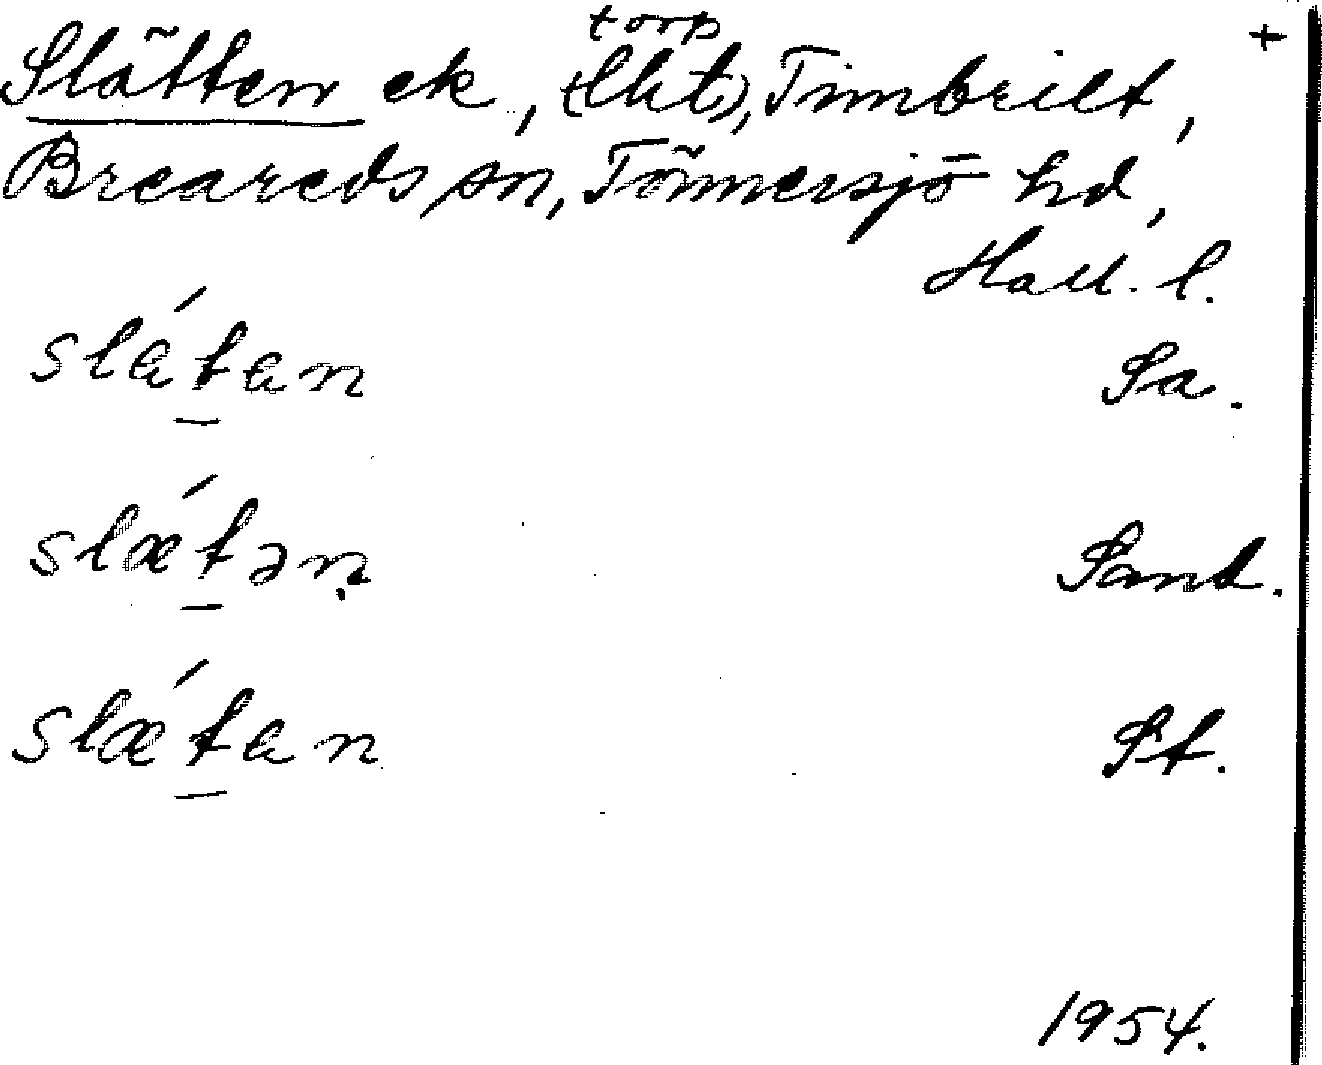 torp +
Slätten ek, (lht), Timbrilt,
Breareds sn, Tönnersjö hd,
Hall. l.
slátan Sa.
slǽtən Sant.
slǽtan St.
1954.